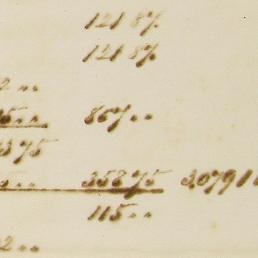 121 87
121 87
2 ..
5 .. 867 ..
375
5 .. 358 75 3,079 1
115 ..
2 ..